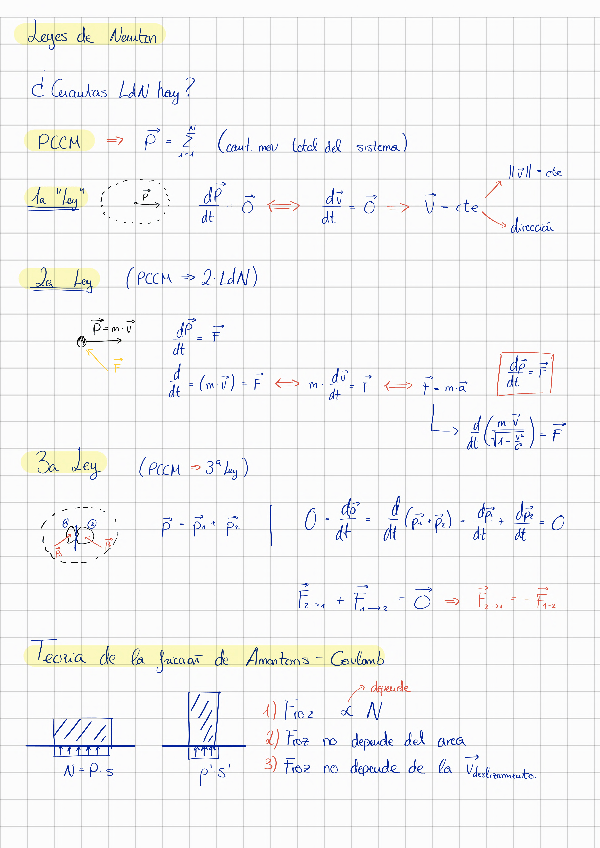 Leyes de Newton
¿ Cuantas LdN hay?
PCCM ⇒ P⃗ = Σ i=1 N (cant. mov total del sistema)
1a "Ley" P⃗ dP⃗/dt = 0⃗ ⟺ dv⃗/dt = 0⃗ → V⃗ = cte
||v⃗|| = cte
dirección
2a Ley (PCCM ⇒ 2·LdN)
P⃗ = m·v⃗ dP⃗/dt = F⃗
F⃗
d/dt = (m·v⃗) = F⃗ ⟷ m·dv⃗/dt = F⃗ ⟺ F⃗ = m·a⃗ dp⃗/dt = F⃗
d/dt (m v⃗/√(1-v²/c²)) = F⃗
3a Ley (PCCM → 3ª Ley)
P⃗ = p⃗1 + p⃗2 | 0 = dp⃗/dt = d/dt (p⃗1 + p⃗2) = dp⃗1/dt + dp⃗2/dt = 0
F⃗2→1 + F⃗1→2 = 0⃗ ⇒ F⃗2→1 = - F⃗1-2
Teoria de la fricción de Amontons - Coulomb
depende
1) Froz ∝ N
2) Froz no depende del area
3) Froz no depende de la v⃗deslizamiento.
N = P·s p' s'